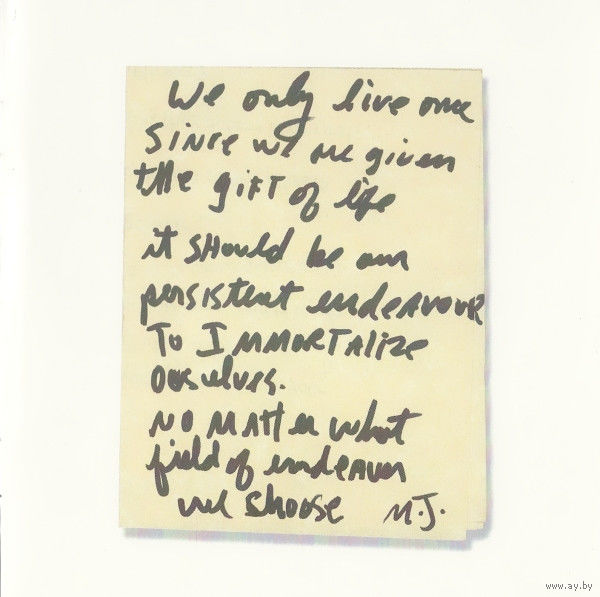 We only live once
Since we are given
the gift of life
it should be our
persistent endeavour
To Immortalize
ourselves.
No matter what
field of endeavor
we choose M.J.
www.ay.by